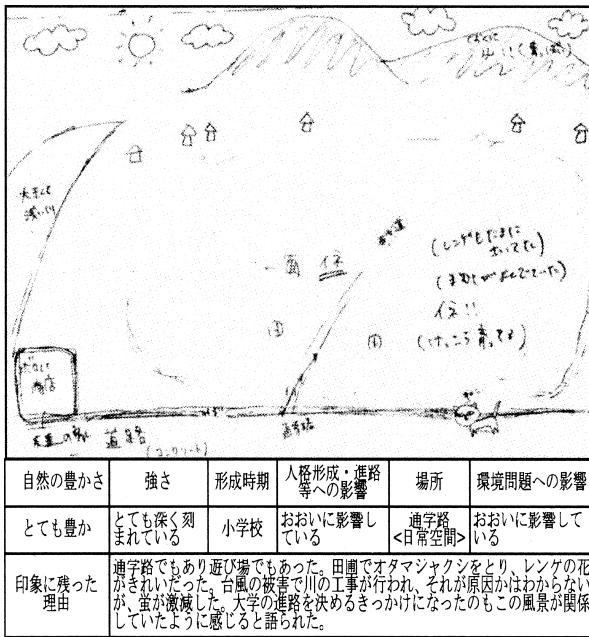 山!!
大きくて
浅い川
一面 イネ
(レンゲもたまに
さいてた)
イネ!!
商店
道路
(コンクリート)
通学路
自然の豊かさ 強さ 形成時期 人格形成・進路等への影響 場所 環境問題への影響
とても豊か とても深く刻まれている 小学校 おおいに影響している 通学路<日常空間> おおいに影響している
印象に残った理由
通学路でもあり遊び場でもあった。田圃でオタマジャクシをとり、レンゲの花
がきれいだった。台風の被害で川の工事が行われ、それが原因かはわからない
が、蛍が激減した。大学の進路を決めるきっかけになったのもこの風景が関係
していたように感じると語られた。